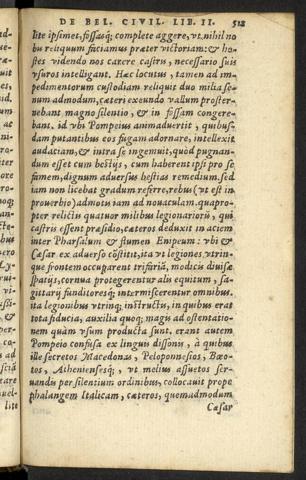 DE BEL. CIVIL. LIB. II. 512
lite ipsimet, fossasq; complete aggere, vt nihil no
bis reliquum faciamus præter victoriam: & ho-
stes videndo nos carere castris, necessario suis
vsuros intelligant. Hæc locutus, tamen ad im-
pedimentorum custodiam reliquit duo milia se-
num admodum, cæteri exeundo vallum proster-
nebant magno silentio, & in fossam congere-
bant. id vbi Pompeius animaduertit, quibus-
dam putantibus eos fugam adornare, intellexit
audatiam, & intra se ingenuit, quòd pugnan-
dum esset cum bestijs, cum haberent ipsi pro se
famem, dignum aduersus hostias remedium. sed
iam non licebat gradum referre, rebus (vt est in
prouerbio) admotis iam ad nouaculam. quapro-
pter relictis quatuor milibus legionariorū, qui
castris essent præsidio, cæteros deduxit in aciem
inter Pharsalum & flumen Enipeum: vbi &
Cæsar ex aduerso cōstitit, ita vt legiones vtrin-
que frontem occuparent trifariā, modicis diuisæ
spatijs, cornua protegerentur alis equitum, sa-
gittarij funditoresq; intermiscerentur omnibus.
ita legionibus vtrinq; instructis, in quibus erat
tota fiducia, auxilia quoq; magis ad ostentatio-
nem quàm vsum producta sunt. erant autem
Pompeio confusa ex linguis dissonis, à quibus
ille secretos Macedonas, Peloponnesios, Bœo-
tos, Atheniensesq; , vt melius assuetos ser-
uandis per silentium ordinibus, collocauit prope
phalangem Italicam, cæteros, quemadmodum
Cæsar